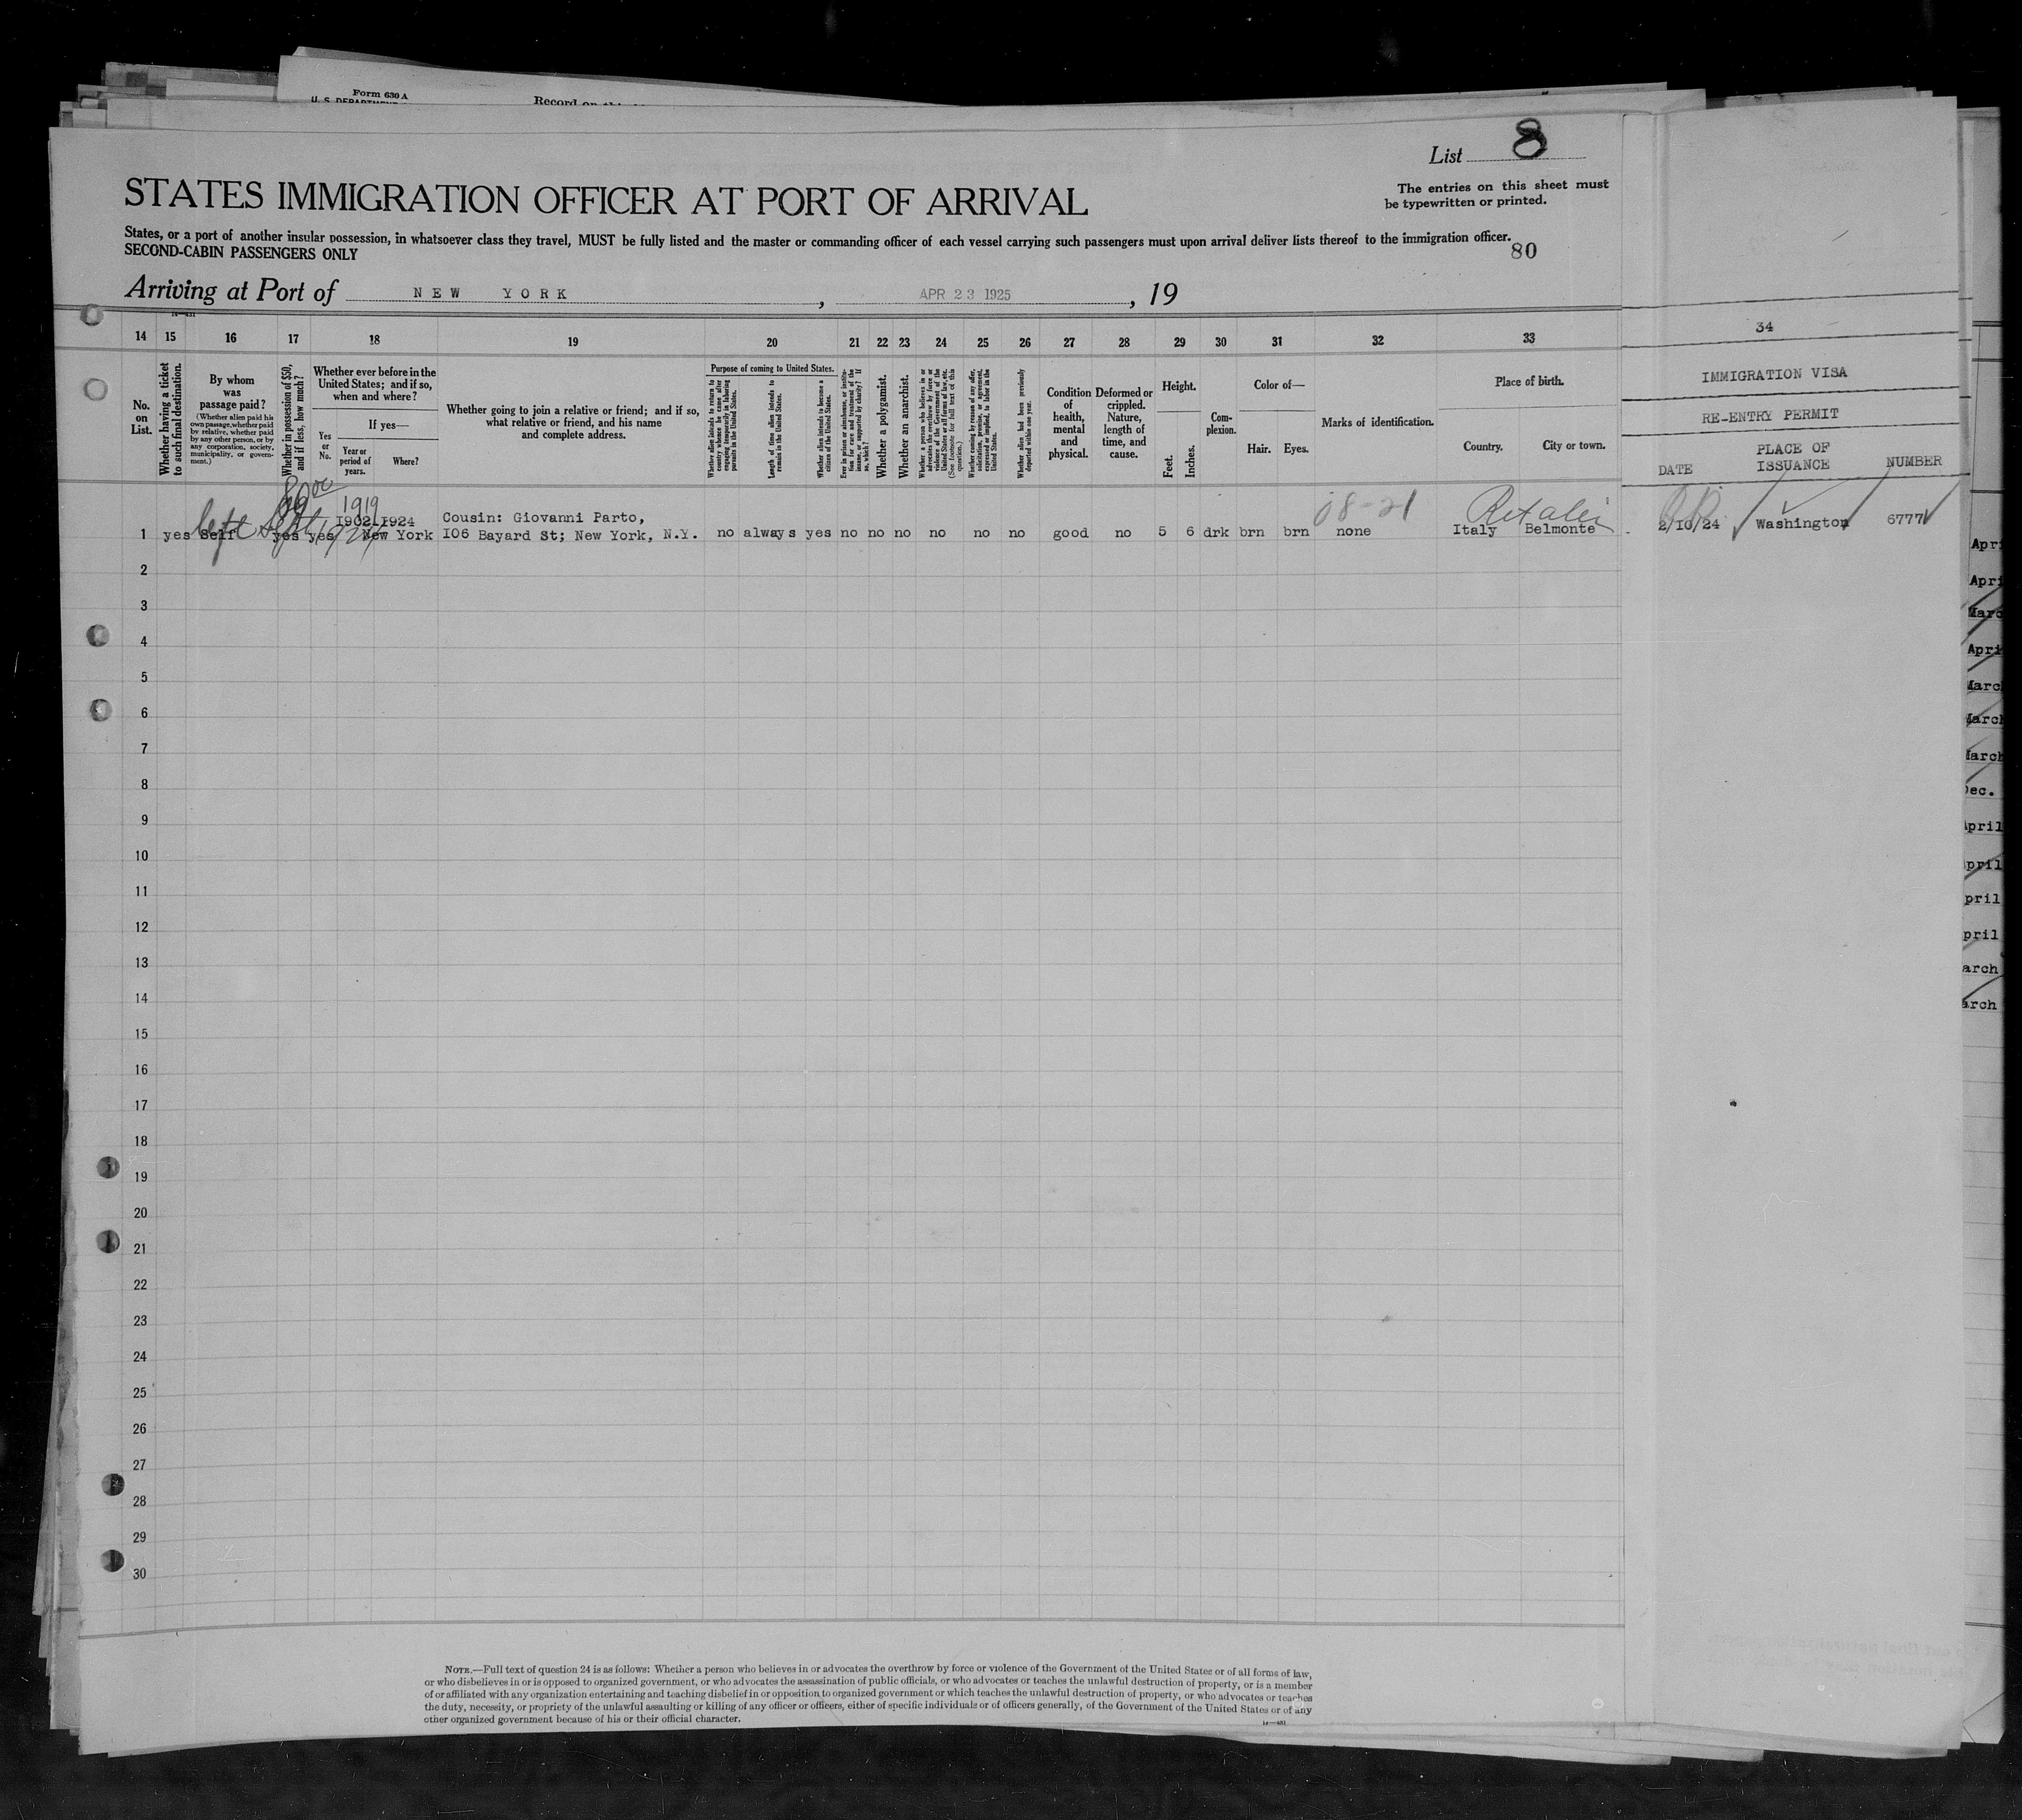 Form 630 A
U. S. DEPARTMENT
Record on this
List 8
STATES IMMIGRATION OFFICER AT PORT OF ARRIVAL
The entries on this sheet must
be typewritten or printed.
States, or a port of another insular possession, in whatsoever class they travel, MUST be fully listed and the master or commanding officer of each vessel carrying such passengers must upon arrival deliver lists thereof to the immigration officer.
SECOND-CABIN PASSENGERS ONLY
80
Arriving at Port of NEW YORK, APR 23 1925, 19
14 15 16 17 18 19 20 21 22 23 24 25 26 27 28 29 30 31 32 33 34
No. on List.
Whether having a ticket to such final destination.
By whom was passage paid?
(Whether alien paid his own passage, whether paid by relative, whether paid by any other person, or by any corporation, society, municipality, or government.)
Whether in possession of $50, and if less, how much?
Whether ever before in the United States; and if so, when and where?
Yes or No.
If yes—
Year or period of years.
Where?
Whether going to join a relative or friend; and if so, what relative or friend, and his name and complete address.
Purpose of coming to United States.
Whether alien intends to return to country whence he came after engaging temporarily in laboring pursuits in the United States.
Length of time alien intends to remain in the United States.
Whether alien intends to become a citizen of the United States.
Ever in prison or almshouse, or institution for care and treatment of the insane, or supported by charity? If so, which?
Whether a polygamist.
Whether an anarchist.
Whether a person who believes in or advocates the overthrow by force or violence of the Government of the United States or all forms of law, etc. (See footnote for full text of this question.)
Whether coming by reason of any offer, solicitation, promise, or agreement, expressed or implied, to labor in the United States.
Whether alien had been previously deported within one year.
Condition of health, mental and physical.
Deformed or crippled. Nature, length of time, and cause.
Height.
Feet. Inches.
Complexion.
Color of—
Hair. Eyes.
Marks of identification.
Place of birth.
Country. City or town.
IMMIGRATION VISA
RE-ENTRY PERMIT
DATE PLACE OF ISSUANCE NUMBER
80 00
1919
08-21
1902 1924 Cousin: Giovanni Parto,
left Sept 1924
1 yes Self yes yes New York 106 Bayard St; New York, N.Y. no always yes no no no no no no good no 5 6 drk brn brn none Italy Belmonte 2/10/24 Washington 6777
2
3
4
5
6
7
8
9
10
11
12
13
14
15
16
17
18
19
20
21
22
23
24
25
26
27
28
29
30
April
April
March
April
March
March
March
Dec.
April
April
April
April
March
March
NOTE.—Full text of question 24 is as follows: Whether a person who believes in or advocates the overthrow by force or violence of the Government of the United States or of all forms of law,
or who disbelieves in or is opposed to organized government, or who advocates the assassination of public officials, or who advocates or teaches the unlawful destruction of property, or is a member
of or affiliated with any organization entertaining and teaching disbelief in or opposition to organized government or which teaches the unlawful destruction of property, or who advocates or teaches
the duty, necessity, or propriety of the unlawful assaulting or killing of any officer or officers, either of specific individuals or of officers generally, of the Government of the United States or of any
other organized government because of his or their official character.
14—431